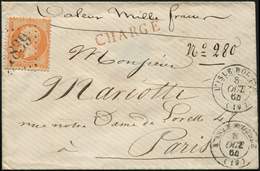 Valeur Mille francs
CHARGÉ
N° 280
Monsieur
Mariotte
rue notre Dame de Lorette
Paris
L'ISLE
8
OCT
64
(19)
8
OCT
64
(19)